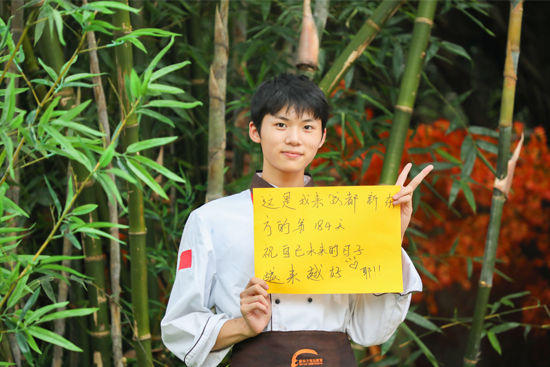 这是我来成都新东
方的第184天
祝自己未来的日子
越来越好 耶!!